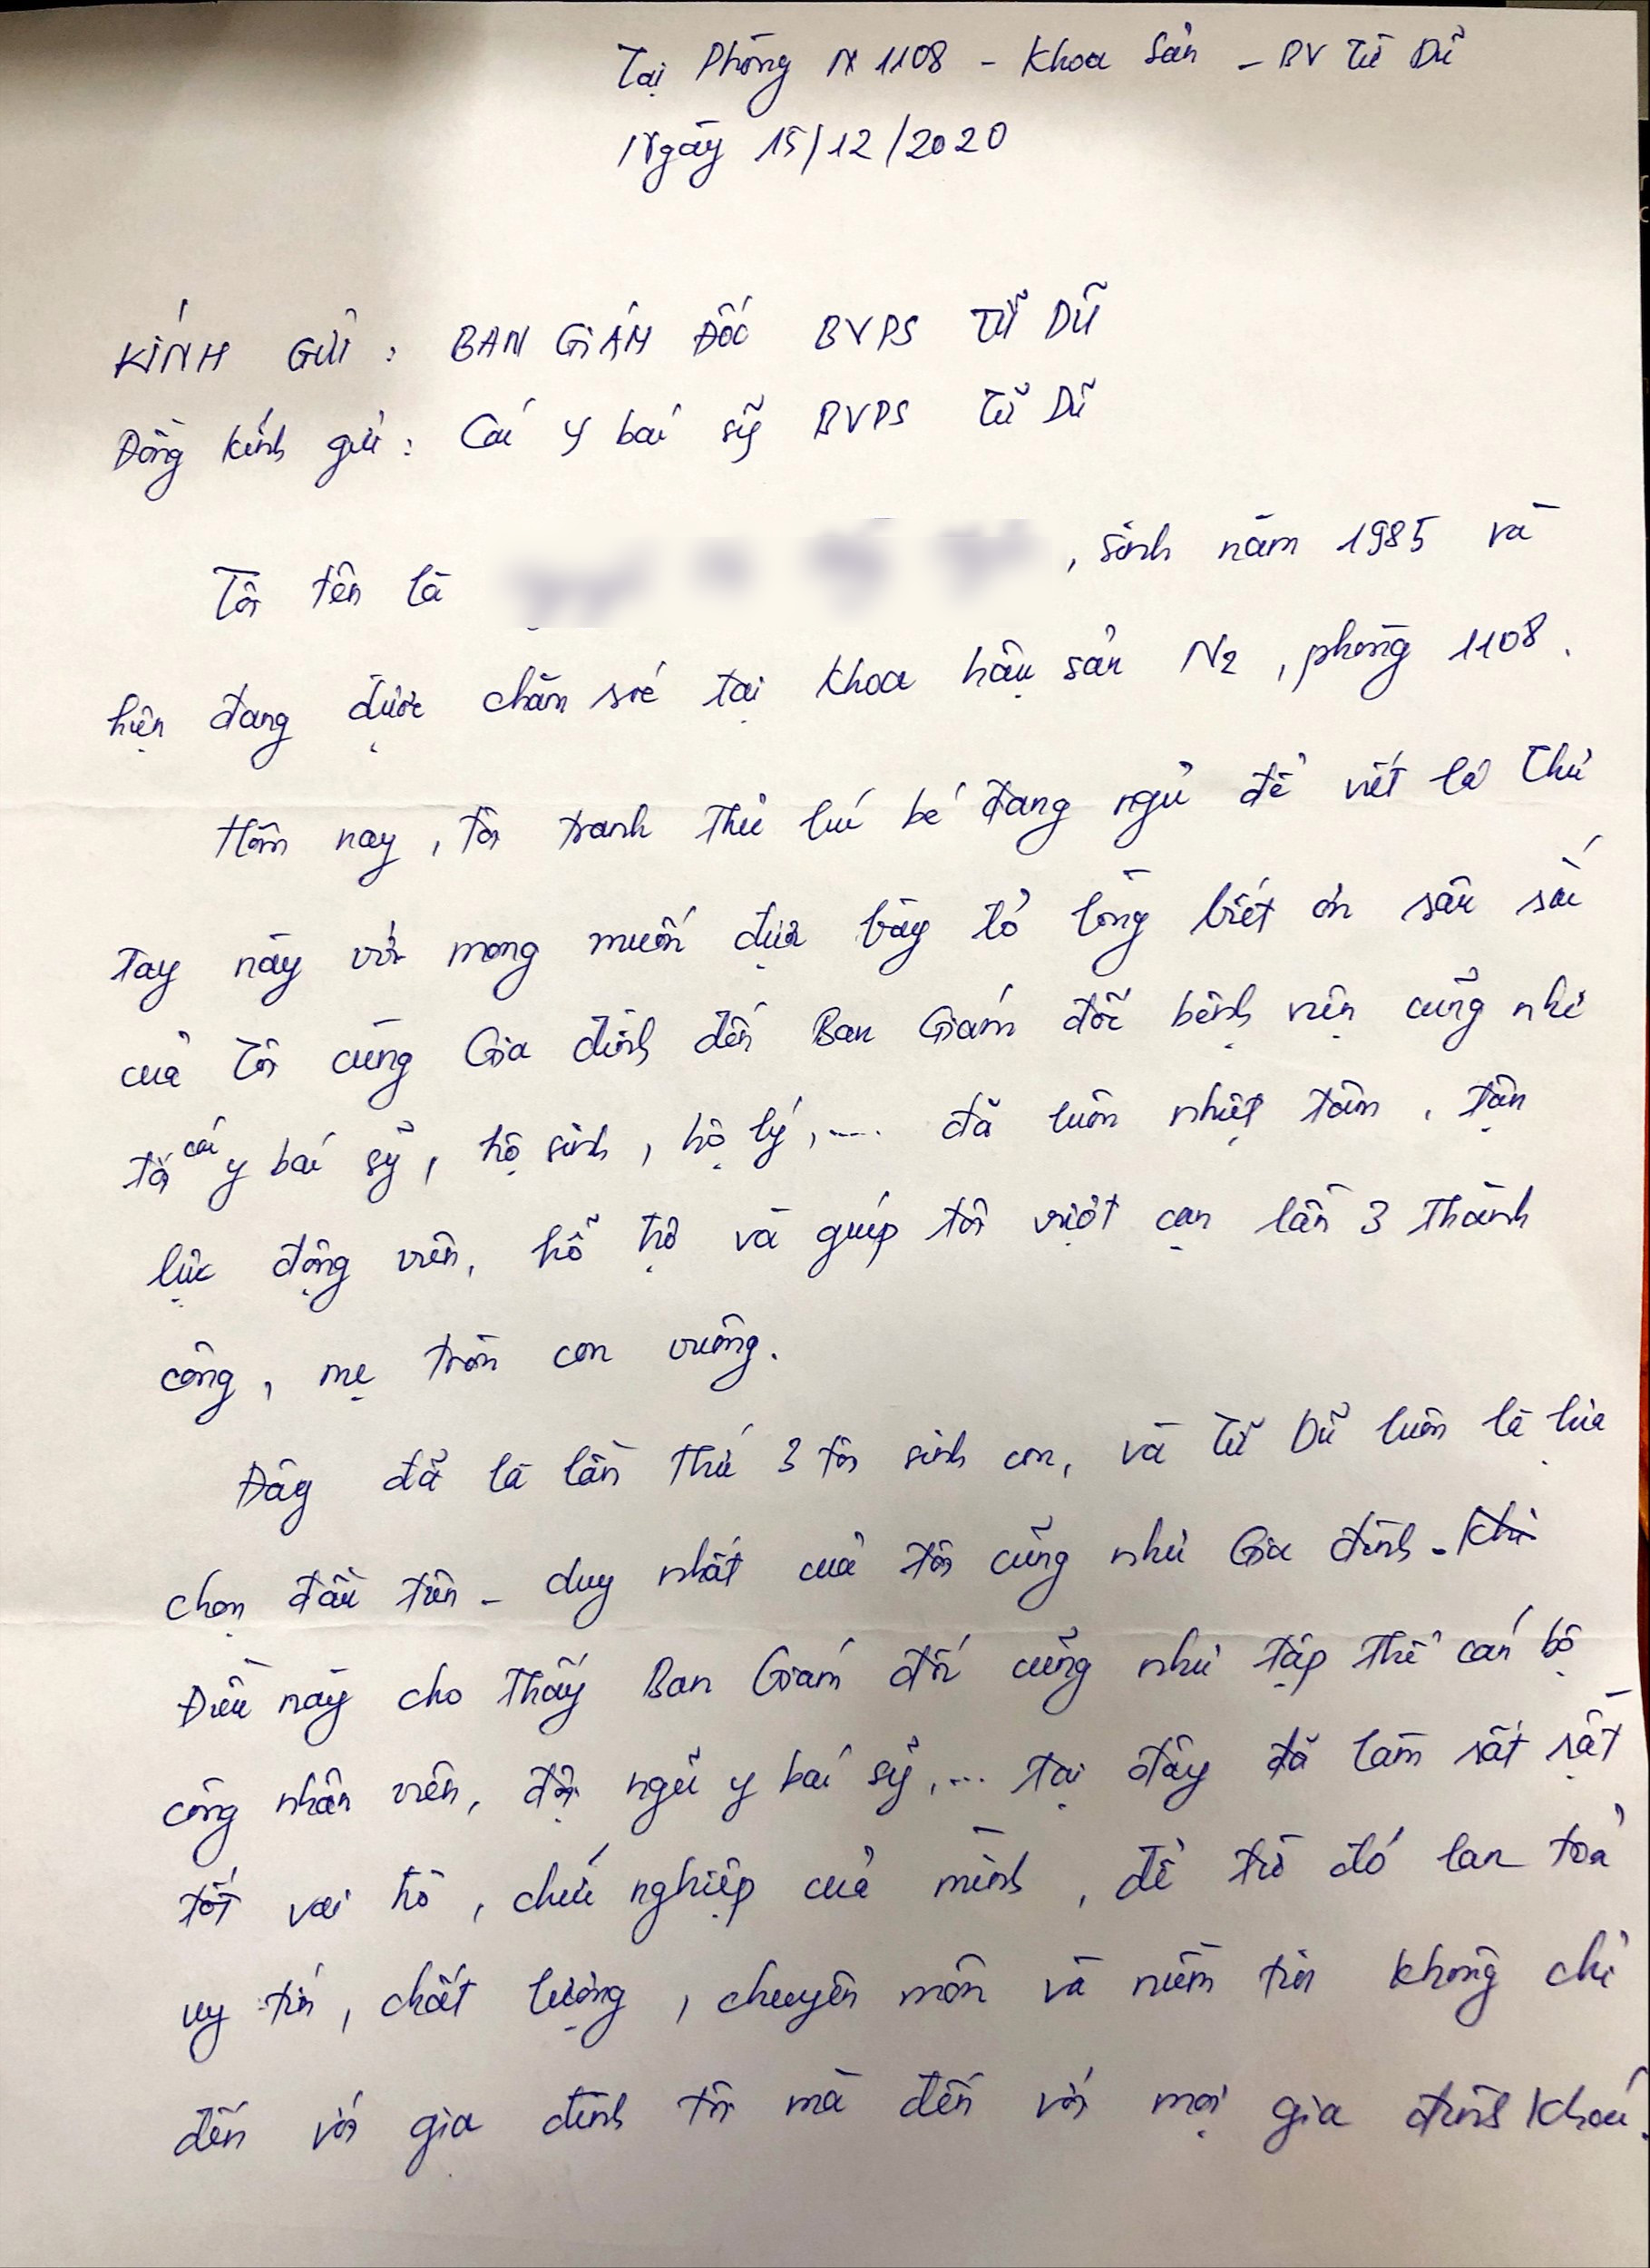 Tại Phòng N 1108 - Khoa Sản - BV Từ Dũ
Ngày 15/12/2020
KÍNH GỬI : BAN GIÁM ĐỐC BVPS TỪ DŨ
Đồng kính gửi : Các y bác sỹ BVPS Từ Dũ
Tôi tên là , sinh năm 1985 và
hiện đang được chăm sóc tại khoa hậu sản N2 , phòng 1108 .
Hôm nay , tôi tranh thủ lúc bé đang ngủ để viết lá thư
tay này với mong muốn được bày tỏ lòng biết ơn sâu sắc
của tôi cùng Gia đình đến Ban Giám đốc bệnh viện cũng như
tới các y bác sỹ , hộ sinh , hộ lý ,.... đã luôn nhiệt tâm , tận
lực động viên, hỗ trợ và giúp tôi vượt cạn lần 3 thành
công , mẹ tròn con vuông.
Đây đã là lần thứ 3 tôi sinh con, và Từ Dũ luôn là lựa
chọn đầu tiên - duy nhất của tôi cũng như Gia đình. Khi
Điều này cho thấy Ban Giám đốc cũng như tập thể cán bộ
công nhân viên, đội ngũ y bác sỹ,... tại đây đã làm rất rất
tốt vai trò , chức nghiệp của mình , để từ đó lan toả
uy tín , chất lượng , chuyên môn và niềm tin không chỉ
đến với gia đình tôi mà đến với mọi gia đình khác.